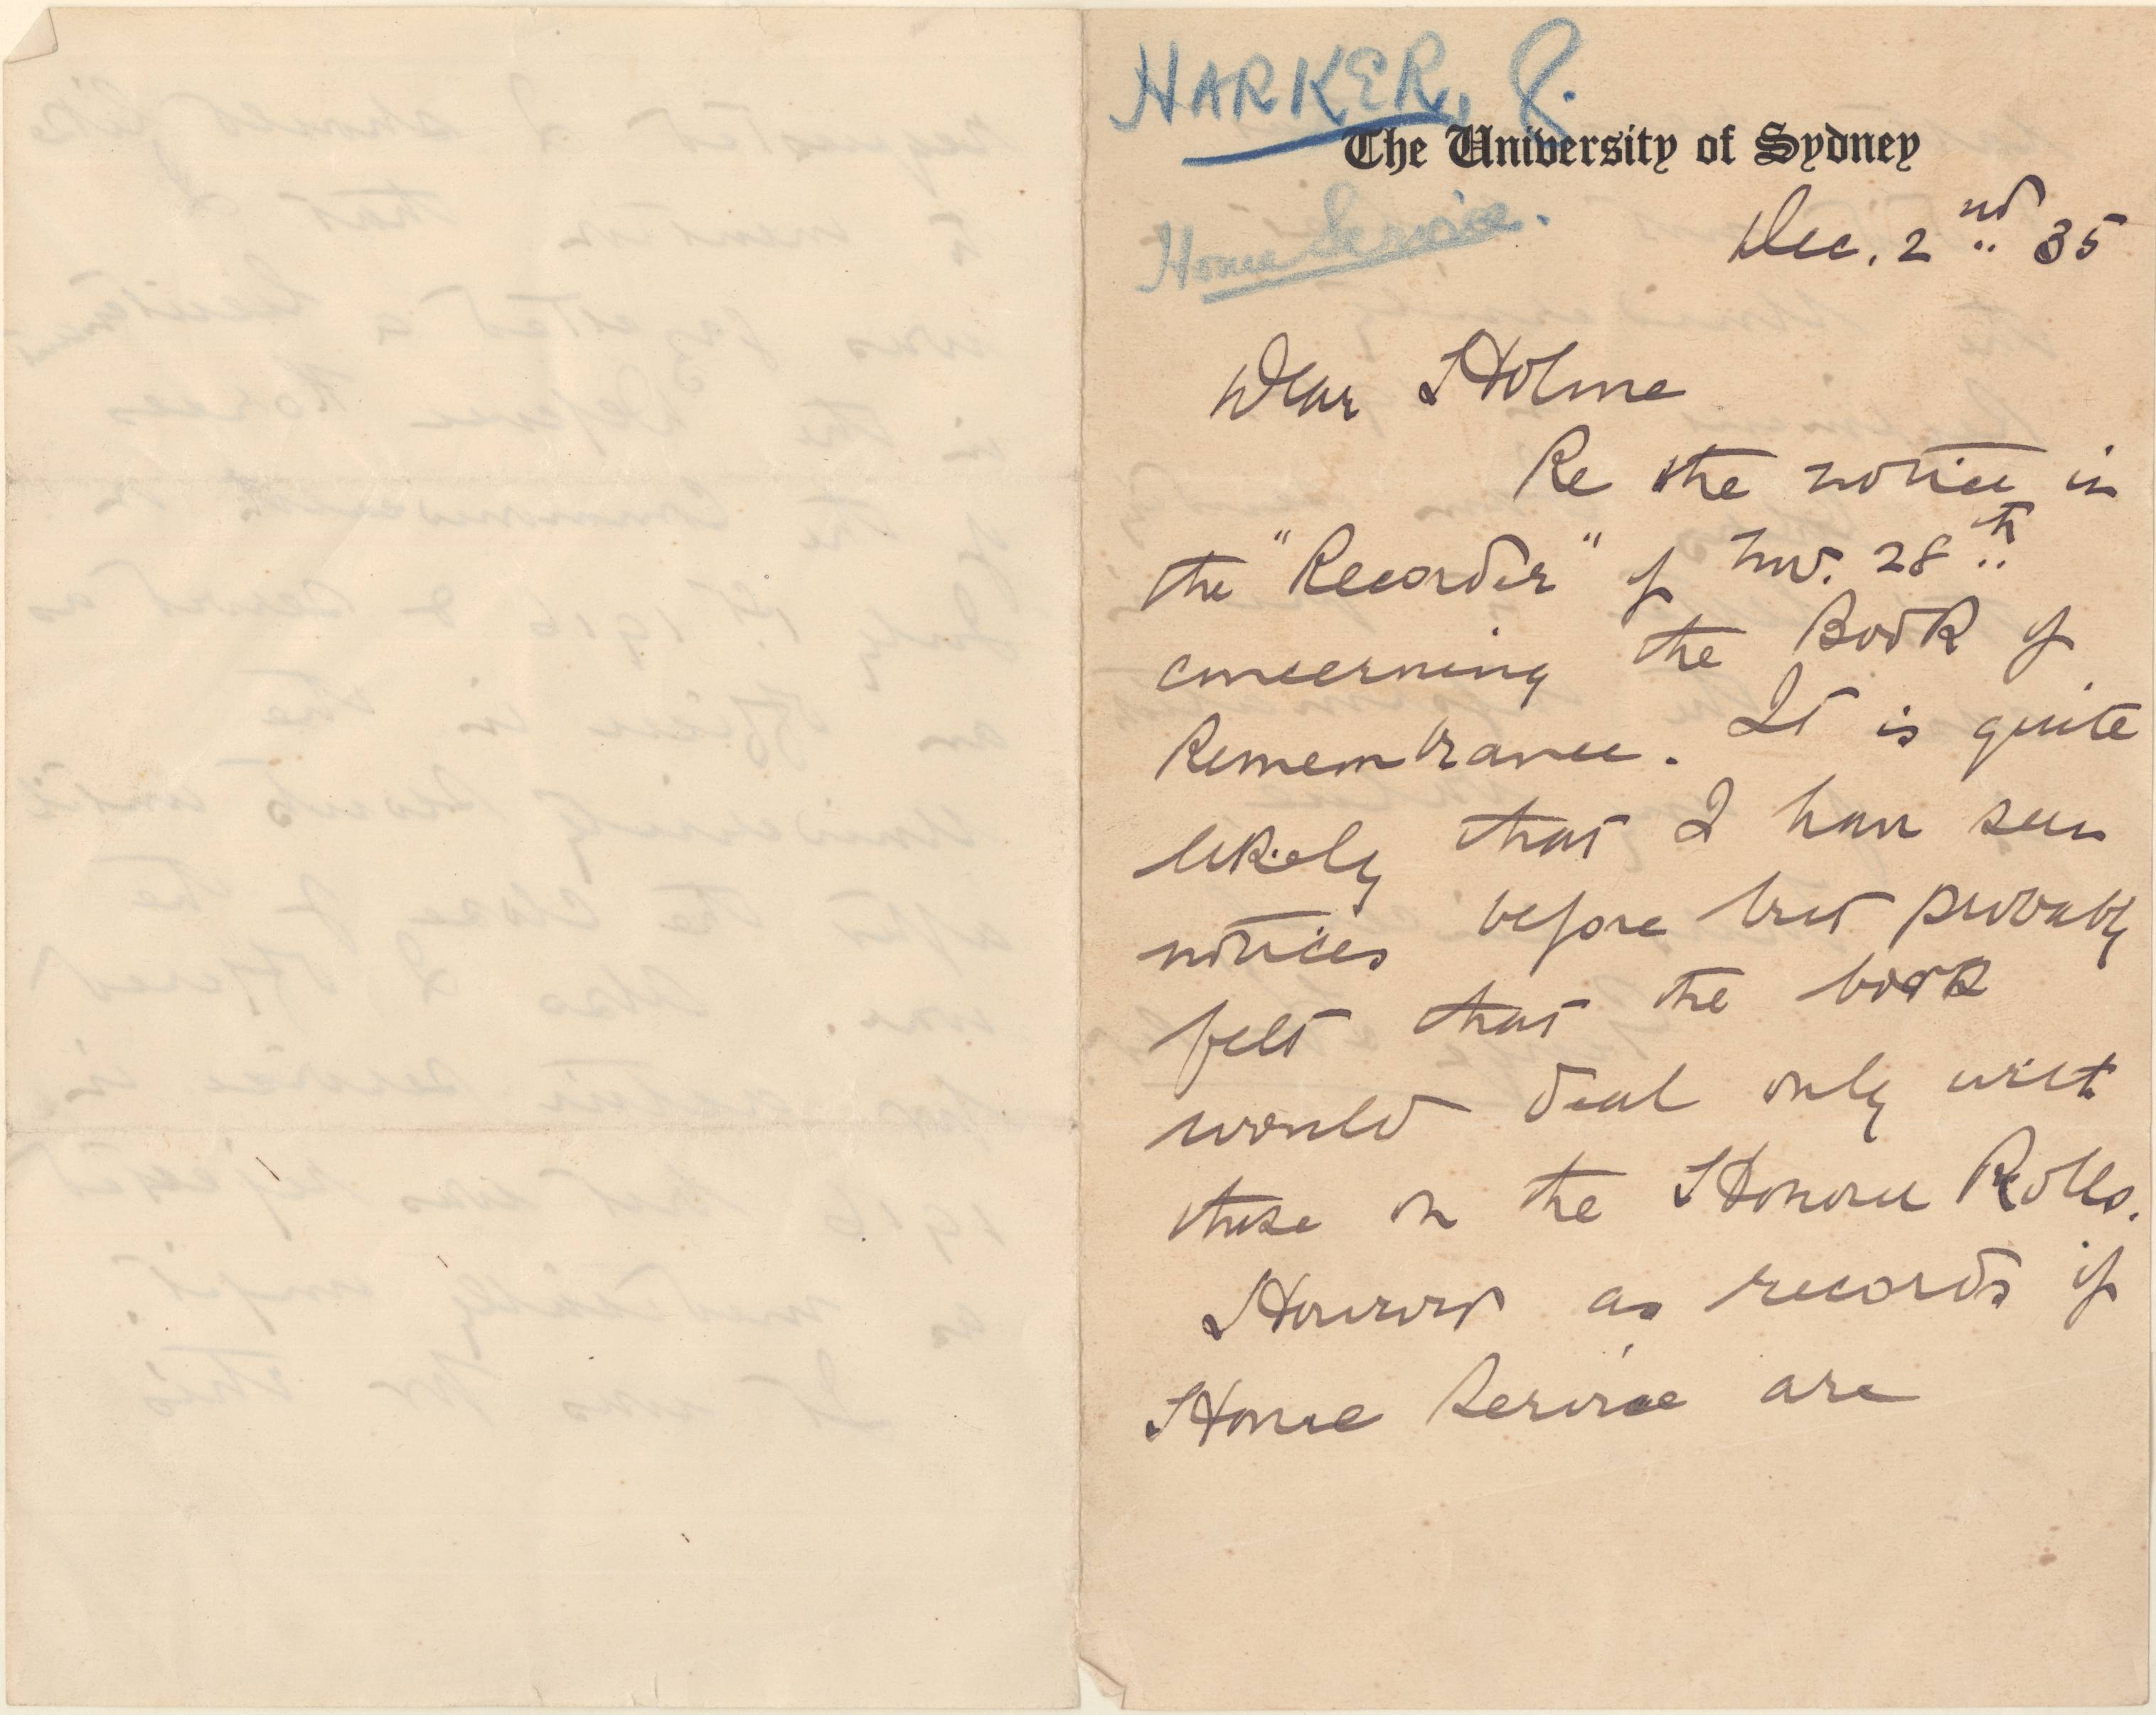 HARKER, G.
The University of Sydney
Home Service.
Dec. 2nd 35
Dear Holme
Re the notice in
the "Recorder" of Nov. 28th
concerning the Book of
Remembrance. It is quite
likely that I have seen
notices before but probably
felt that the book
would deal only with
those on the Honour Rolls.
However as records of
Home Service are